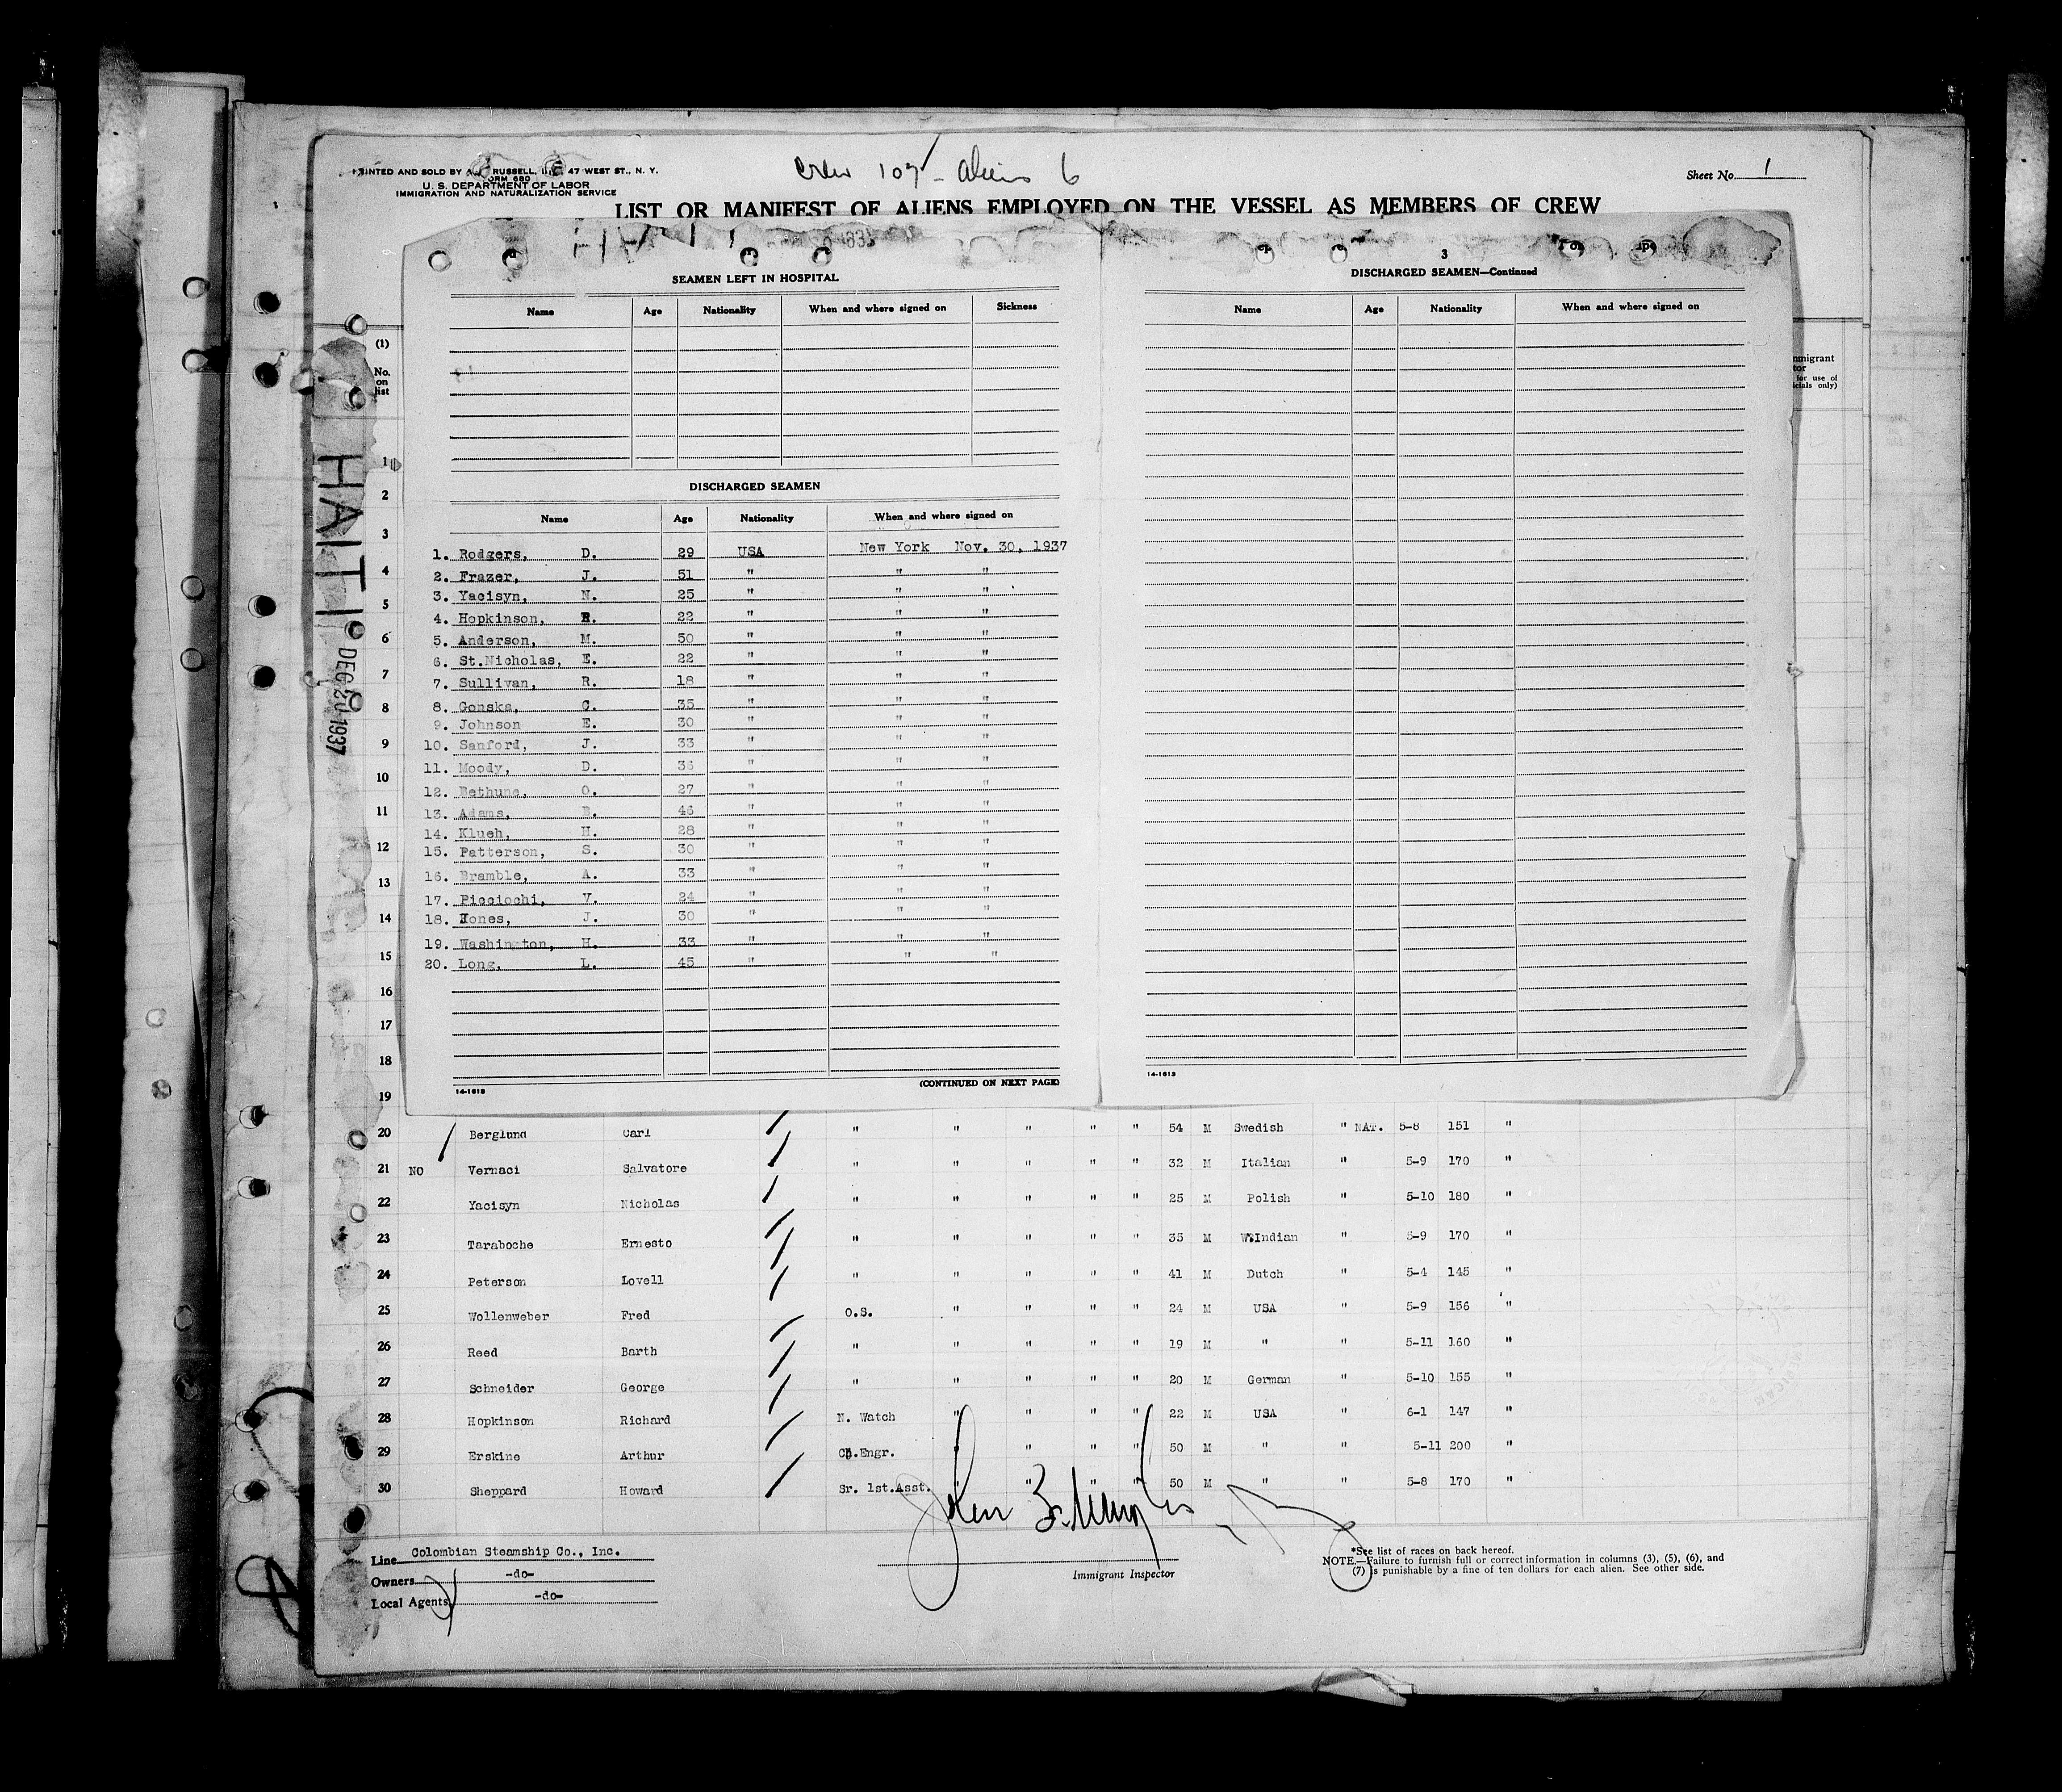 Crew 107 - Aliens 6
PRINTED AND SOLD BY RUSSELL, INC. 47 WEST ST., N. Y.
FORM 680
U. S. DEPARTMENT OF LABOR
IMMIGRATION AND NATURALIZATION SERVICE
Sheet No. 1
LIST OR MANIFEST OF ALIENS EMPLOYED ON THE VESSEL AS MEMBERS OF CREW
HAITI
DEC 20 1937
(1)
No. on list
SEAMEN LEFT IN HOSPITAL
Name Age Nationality When and where signed on Sickness
DISCHARGED SEAMEN
Name Age Nationality When and where signed on
1. Rodgers, D. 29 USA New York Nov. 30, 1937
2. Frazer, J. 51 " " "
3. Yacisyn, N. 25 " " "
4. Hopkinson, R. 22 " " "
5. Anderson, M. 50 " " "
6. St.Nicholas, E. 22 " " "
7. Sullivan, R. 18 " " "
8. Gonska, C. 35 " " "
9. Johnson E. 30 " " "
10. Sanford, J. 33 " " "
11. Moody, D. 36 " " "
12. Bethune, O. 27 " " "
13. Adams, E. 46 " " "
14. Klueh, H. 28 " " "
15. Patterson, S. 30 " " "
16. Bramble, A. 33 " " "
17. Picciochi, V. 24 " " "
18. Jones, J. 30 " " "
19. Washington, H. 33 " " "
20. Long, L. 45 " " "
(CONTINUED ON NEXT PAGE)
14-1613
3
DISCHARGED SEAMEN—Continued
Name Age Nationality When and where signed on
14-1613
nmigrant
tor
for use of
icials only)
1
2
3
4
5
6
7
8
9
10
11
12
13
14
15
16
17
18
19
20 Berglund Carl " " " " " 54 M Swedish " NAT. 5-8 151 "
21 NO Vernaci Salvatore " " " " " 32 M Italian " 5-9 170 "
22 Yacisyn Nicholas " " " " " 25 M Polish " 5-10 180 "
23 Taraboche Ernesto " " " " " 35 M W.Indian " 5-9 170 "
24 Peterson Lovell " " " " " 41 M Dutch " 5-4 145 "
25 Wollenweber Fred O.S. " " " " 24 M USA " 5-9 156 "
26 Reed Barth " " " " " 19 M " " 5-11 160 "
27 Schneider George " " " " " 20 M German " 5-10 155 "
28 Hopkinson Richard N. Watch " " " " 22 M USA " 6-1 147 "
29 Erskine Arthur Ch.Engr. " " " 50 M " " 5-11 200 "
30 Sheppard Howard Sr. 1st.Asst. " " " " 50 M " " 5-8 170 "
Line Colombian Steamship Co., Inc.
Owners -do-
Local Agents -do-
Immigrant Inspector
*See list of races on back hereof.
NOTE.—Failure to furnish full or correct information in columns (3), (5), (6), and
(7) is punishable by a fine of ten dollars for each alien. See other side.